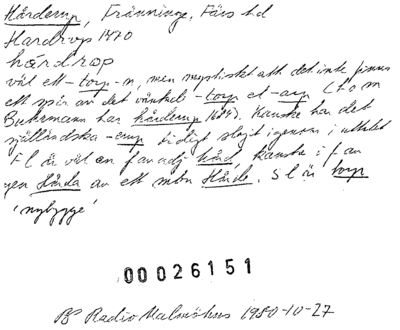 Hårderup, Fränninge, Färs hd
Hardrop 1470
hårdrop
väl ett -torp-n, men mystiskt att det inte finns
ett spår av det väntade -torp el -arp (t o m
Buhrmann har hårderup 1684). Kanske har det
själländska -erup tidigt slagit igenom i uttalet
F l är väl en f av adj hård, kanske i f av
gen Hårda av ett mbn Hårde. S l är torp
'nybygge'
00026151
BP Radio Malmöhus 1980-10-27